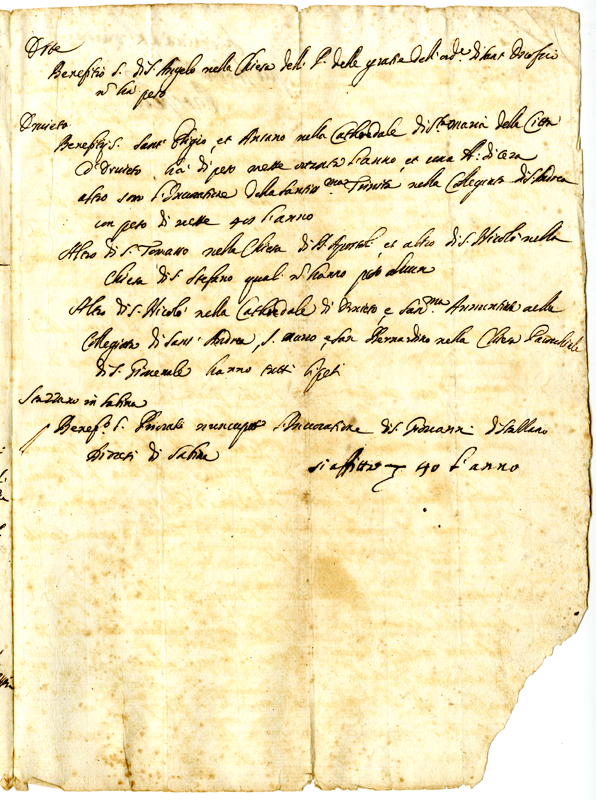 Orte
Benefitio S. di S. Angelo nella Chiesa dell P. delle gratie dell' ord.e di sant
n' ha peso
Orvieto
Benefitij S. Sant' Eligio, et Aniano nella Cathedrale di S.ta Maria della Città
d'Orvieto, ha di peso messe ottanta l'anno, et una di cera
altro sotto l'Invocatione della Santiss.ma Trinità nella Collegiata di S. Andrea
con peso di messe 40 l'anno
Altro di S. Tomasso nella Chiesa di SS. Apostoli, et altro di S. Nicolò nella
Chiesa di S. Stefano quali n' hanno peso alcun
Altro di S. Nicolò nella Cathedrale di Orvieto e San.ma Annuntiata nella
Collegiata di Sant' Andrea, S. Marco, e San Bernardino nella Chiesa Parochiale
di S. Giovenale hanno tutti li pesi
in Sabina
Benef.o S. Priorale nuncupato Invocatione di S. Giovanni di
Diocesi di Sabina
si affitta 40 l'anno